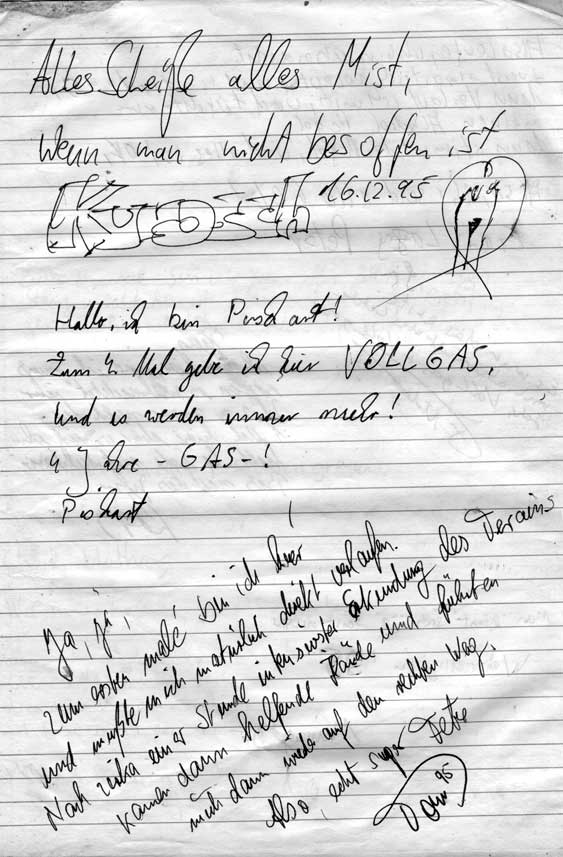 Alles Scheiße alles Mist,
wenn man nicht besoffen ist
16.12.95
Hallo, ich bin
Zum 4. Mal gebe ich hier VOLLGAS,
und es werden immer mehr!
4 Jahre - GAS - !
Ja, ja,
zum ersten male bin ich hier
und mußte mich natürlich direkt verlaufen.
Nach zirka einer Stunde intensivster Erkundung des Terains
kamen dann helfende Hände und führten
mich dann wieder auf den rechten Weg.
Also, echt super Fete
95